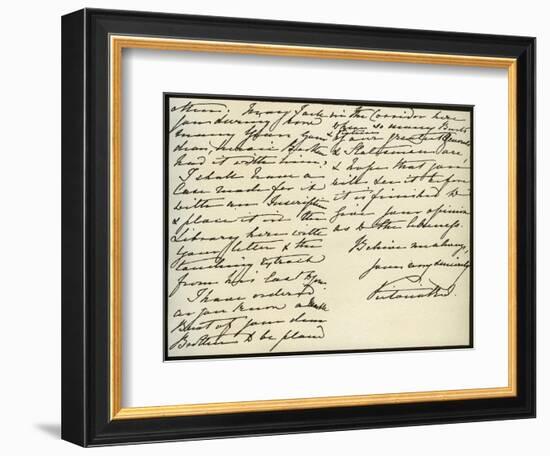 other. May I ask
you during how
many years your
dear, heroic Brother
had it with him?
I shall have a
Case made for it
with an Inscription
& place it in the
Library here with
your letter & the
touching extract
from his last to you.
I have ordered,
as you know a Marble
Bust of your dear
Brother to be placed
in the Corridor here
where so many Busts
& Pictures of our greatest Generals
& Statesmen are,
& hope that you
will see it before
it is finished to
give your opinion
as to the likeness.
Believe me always,
yours very sincerely
Victoria R.I.